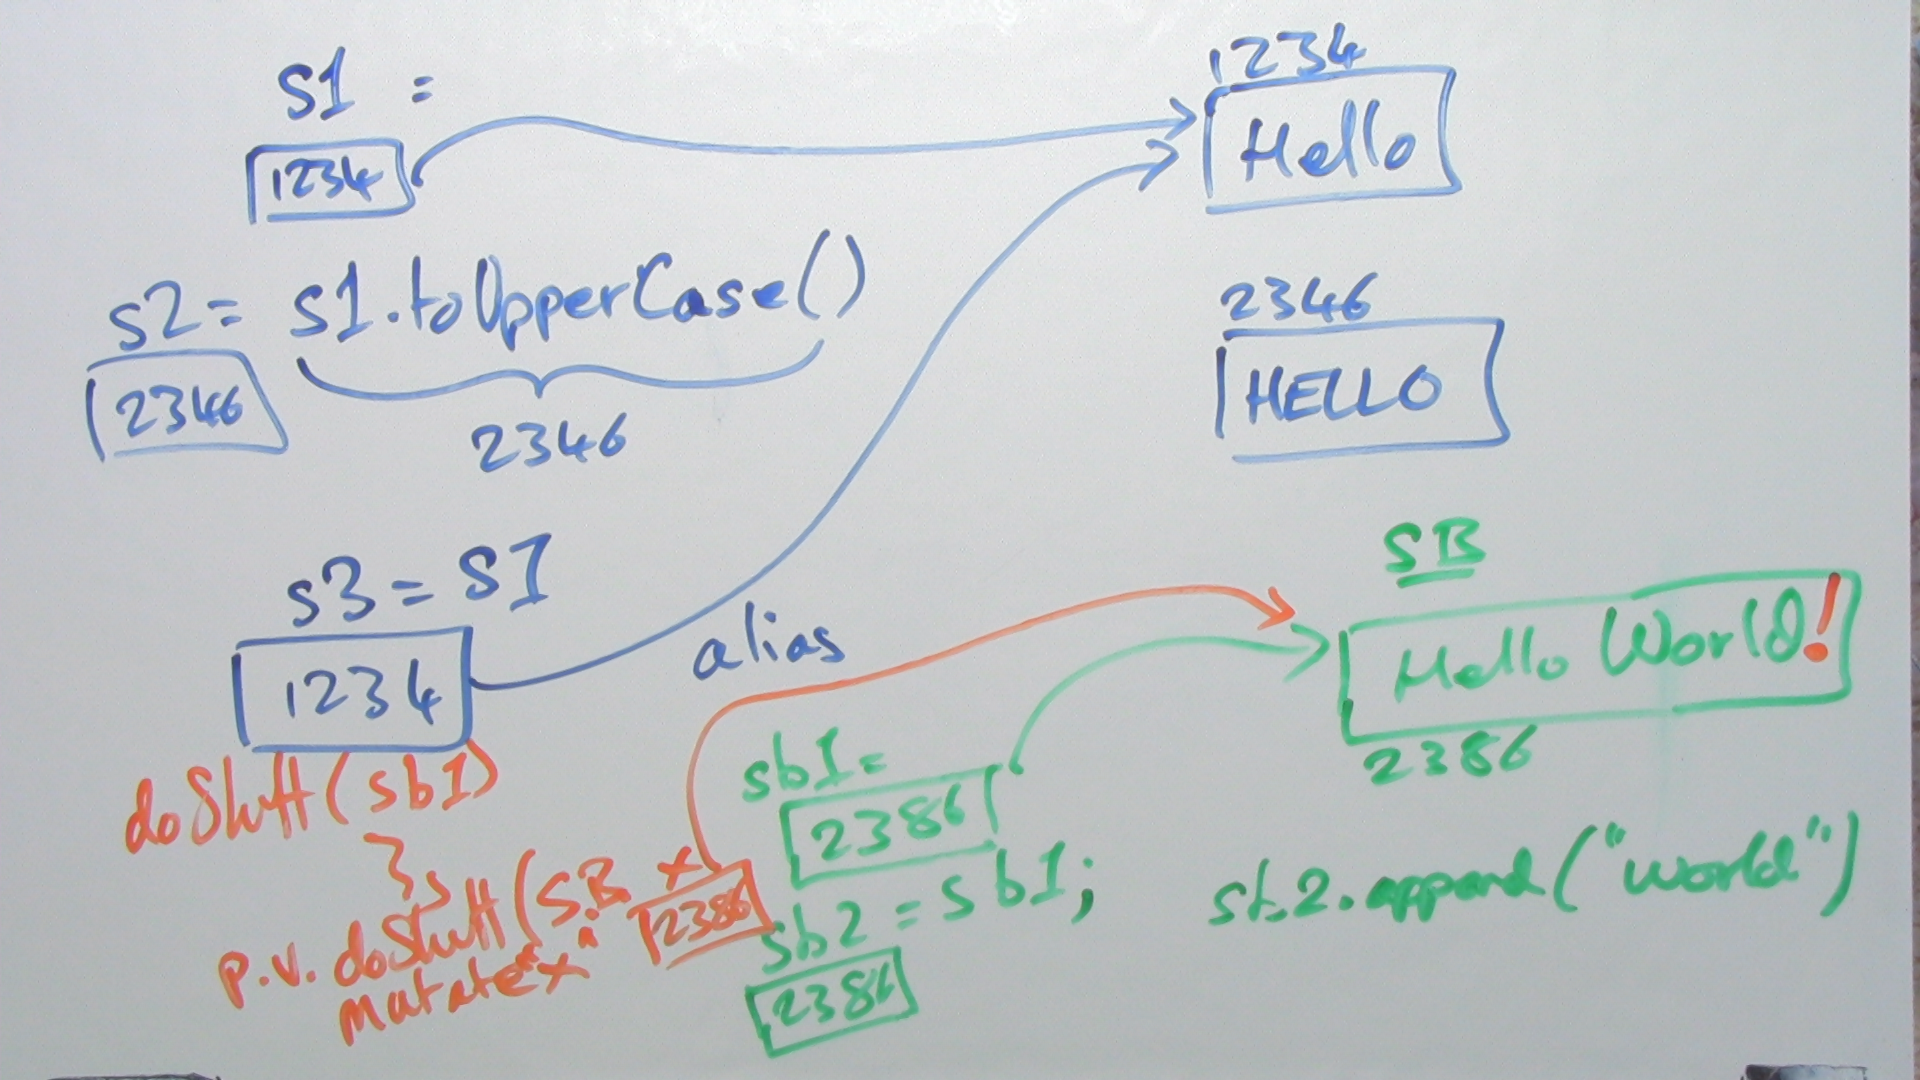 s1 =
1234
1234
Hello
s2 = s1.toUpperCase()
2346
2346
2346
HELLO
s3 = s1
1234
alias
SB
Hello World!
2386
doStuff(sb1)
p.v. doStuff(SB x
2386
mutate "x"
sb1 =
2386
sb2 = sb1;
2386
sb2.append("world")